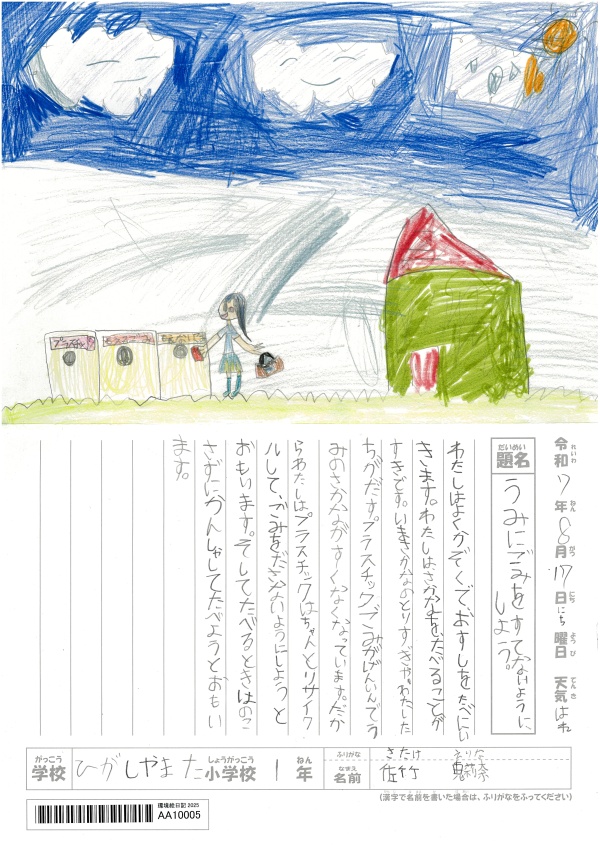 プラスチック
もえるゴミ
令和7年8月17日にち曜日 天気はれ
れいわ ねん がつ にち ようび てんき
だいめい
題名
うみにごみをすてないように
しよう。
わたしはよくかぞくで、おすしをたべにい
きます。わたしはさかなを、たべることが
すきです。いまさかなのとりすぎや、わたした
ちがだすプラスチックごみがげんいんでう
みのさかながすくなくなっています。だか
らわたしはプラスチックはちゃんとリサイク
ルして、ごみをださないようにしようと
おもいます。そしてたべるときはのこ
さずにかんしゃしてたべようとおもい
ます。
がっこう しょうがっこう ねん
学校 ひがしやまた小学校 1年
ふりがな さたけ えりな
なまえ
名前 佐竹 莉奈
(漢字で名前を書いた場合は、ふりがなをふってください)
環境絵日記 2025
AA10005